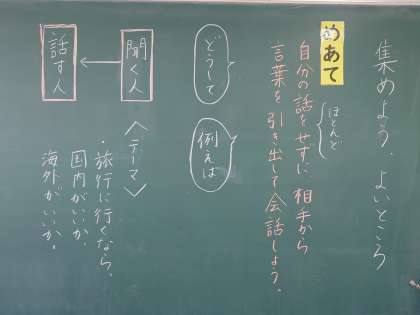 集めよう、よいところ
めあて
ほとんど
自分の話をせずに、相手から
言葉を引き出して会話しよう。
どうして
例えば
聞く人
話す人
〈テーマ〉
・旅行に行くなら、
国内がいいか、
海外がいいか。